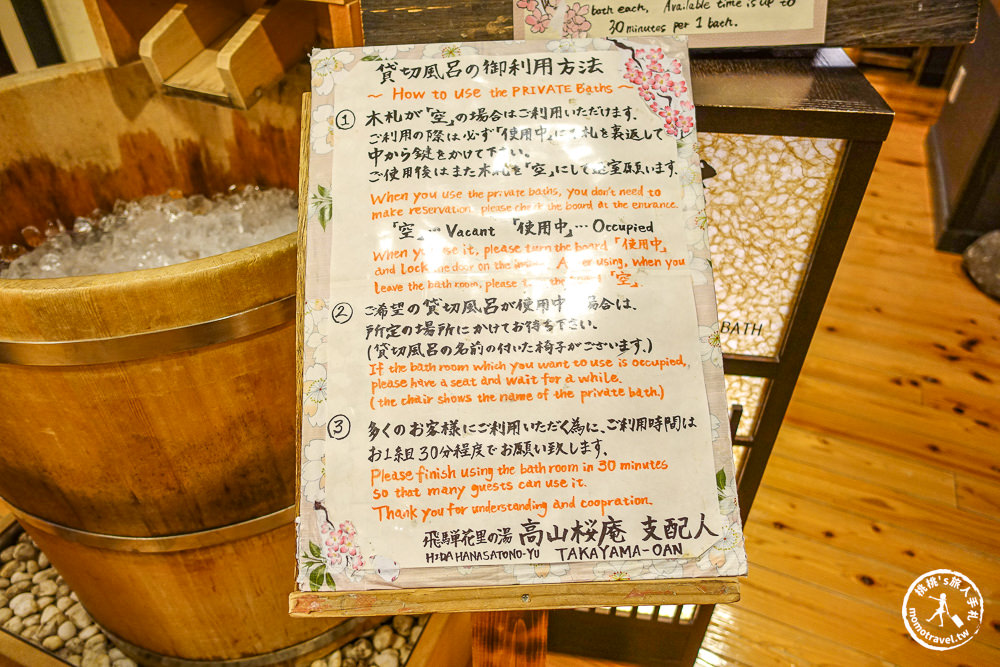 bath each, Available time is up to
30 minutes per 1 bath.
貸切風呂の御利用方法
~ How to use the PRIVATE Baths ~
① 木札が「空」の場合はご利用いただけます。
ご利用の際は必ず「使用中」に札を裏返して
中から鍵をかけて下さい。
ご使用後はまた木札を「空」にして退室願います。
When you use the private baths, you don't need to
make reservation, please check the board at the entrance.
「空」… Vacant 「使用中」… Occupied
When you use it, please turn the board 「使用中」
and Lock the door on the After using, when you
leave the bath room, please the 「空」.
② ご希望の貸切風呂が使用中の場合は、
所定の場所にかけてお待ち下さい。
(貸切風呂の名前の付いた椅子がございます。)
If the bath room which you want to use is occupied,
please have a seat and wait for a while.
(the chair shows the name of the private bath.)
③ 多くのお客様にご利用いただく為に、ご利用時間は
お1組30分程度でお願い致します。
Please finish using the bath room in 30 minutes
so that many guests can use it.
Thank you for understanding and coopration.
飛騨花里の湯 高山桜庵 支配人
HIDA HANASATONO-YU TAKAYAMA-OAN
BATH
桃桃's旅人手札
momotravel.tw